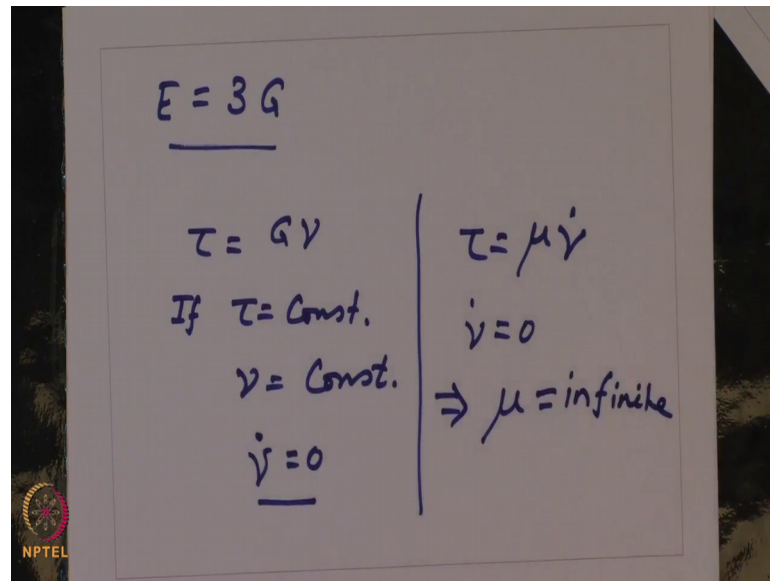 E = 3 G
τ = Gγ
If τ = Const.
γ = Const.
γ̇ = 0
τ = μγ̇
γ̇ = 0
⇒ μ = infinite
NPTEL